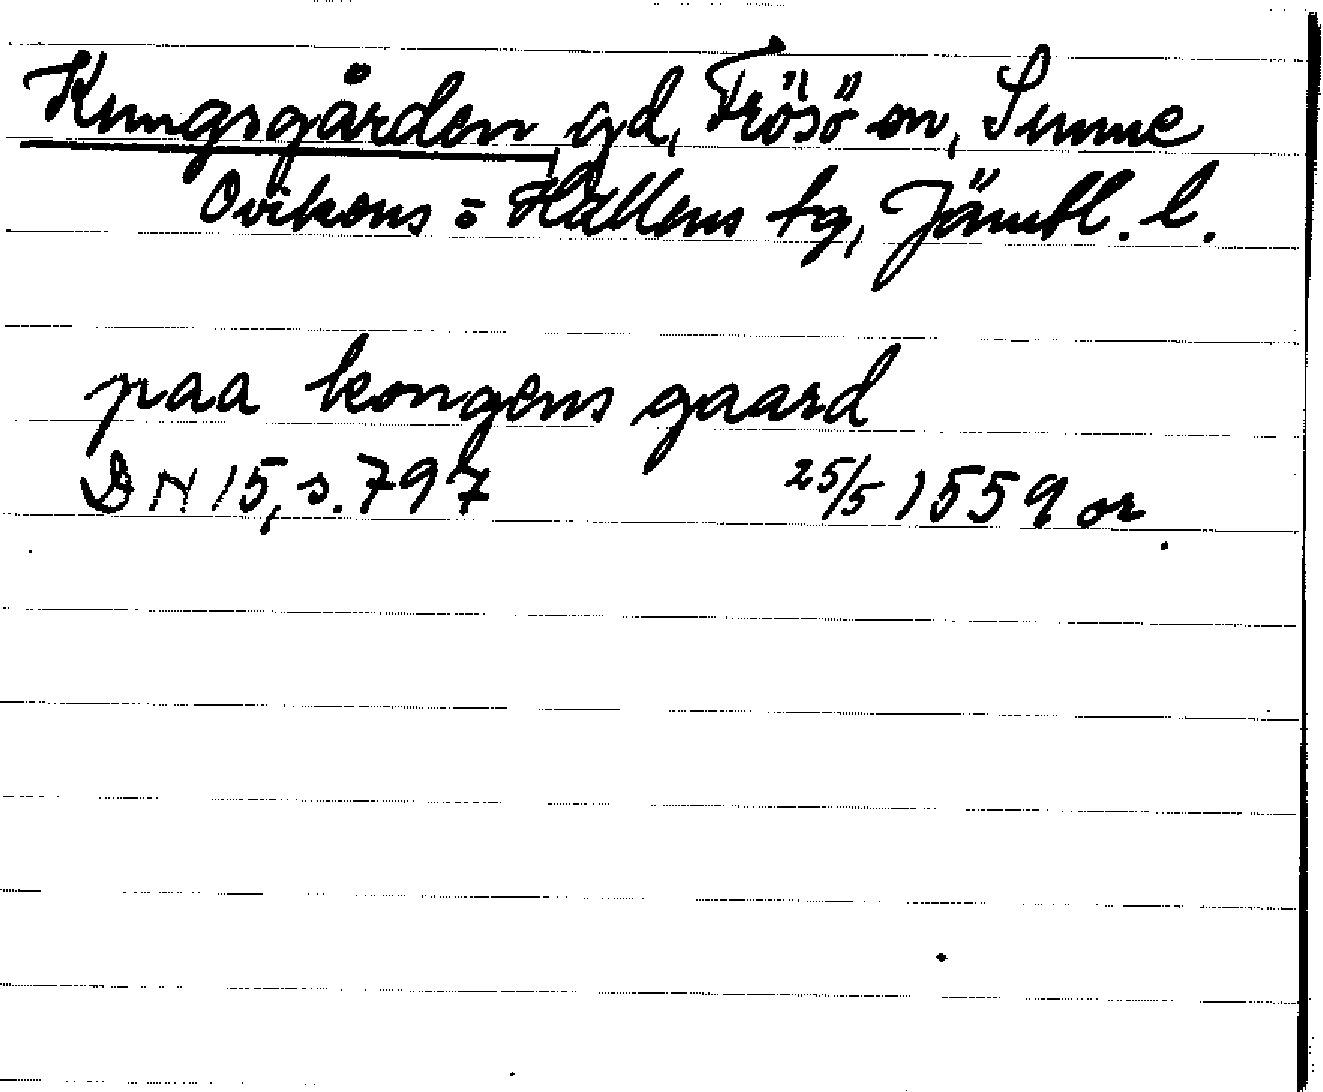 Kungsgården gd, Frösö sn, Sunne
Ovikens = Hallens tg, Jämtl. l.
paa kongens gaard
DN 15, s. 797 25/5 1559 or.